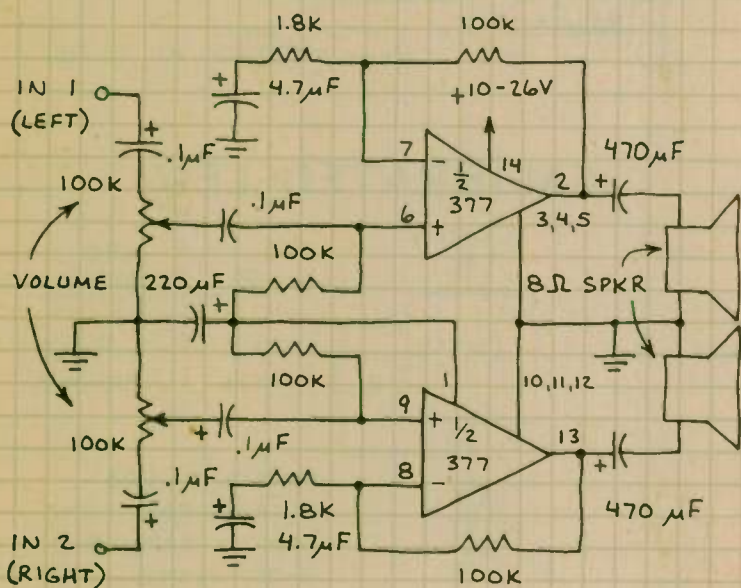 1.8K
100K
IN 1
(LEFT)
+
4.7µF
+10-26V
+
.1µF
7
-
14
470µF
100K
.1µF
1/2
377
2
+
6
+
3,4,5
100K
VOLUME
220µF
+
8Ω SPKR
100K
1
10,11,12
9
+
1/2
377
13
100K
+
.1µF
8
-
+
.1µF
+
1.8K
470 µF
+
4.7µF
IN 2
(RIGHT)
100K